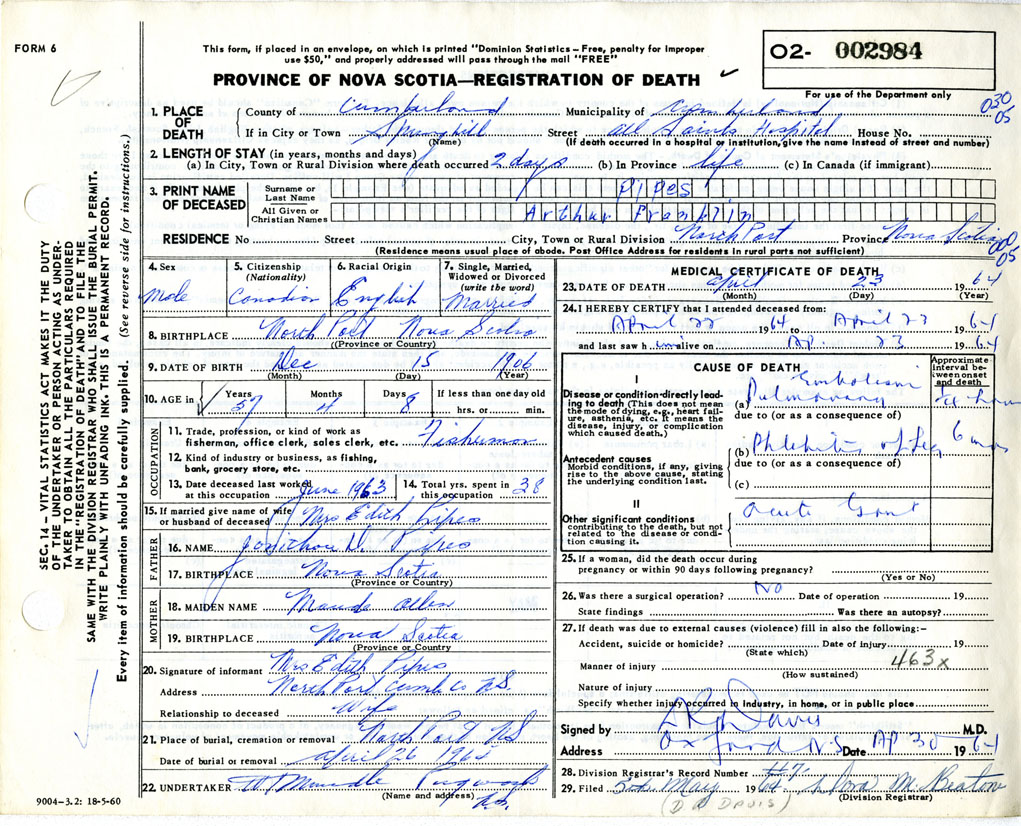 FORM 6
This form, if placed in an envelope, on which is printed "Dominion Statistics – Free, penalty for improper
use $50," and properly addressed will pass through the mail "FREE"
PROVINCE OF NOVA SCOTIA—REGISTRATION OF DEATH ✓
O2- 002984
For use of the Department only
030
05
1. PLACE OF DEATH
County of Cumberland Municipality of Cumberland
If in City or Town Springhill Street All Saints Hospital House No.
(Name) (If death occurred in a hospital or institution, give the name instead of street and number)
2. LENGTH OF STAY (in years, months and days)
(a) In City, Town or Rural Division where death occurred 2 days (b) In Province life (c) In Canada (if immigrant)
3. PRINT NAME OF DECEASED
Surname or Last Name Pipes
All Given or Christian Names Arthur Franklin
RESIDENCE No Street City, Town or Rural Division North Port Province Nova Scotia
000
05
(Residence means usual place of abode. Post Office Address for residents in rural parts not sufficient)
4. Sex Male
5. Citizenship (Nationality) Canadian
6. Racial Origin English
7. Single, Married, Widowed or Divorced (write the word) Married
8. BIRTHPLACE North Port Nova Scotia
(Province or Country)
9. DATE OF BIRTH Dec 15 1906
(Month) (Day) (Year)
10. AGE in Years 57 Months 4 Days 8 If less than one day old hrs. or min.
OCCUPATION
11. Trade, profession, or kind of work as
fisherman, office clerk, sales clerk, etc. Fisherman
12. Kind of industry or business, as fishing,
bank, grocery store, etc.
13. Date deceased last worked at this occupation June 1963
14. Total yrs. spent in this occupation 38
15. If married give name of wife
or husband of deceased Mrs Edith Pipes
FATHER
16. NAME D. Pipes
17. BIRTHPLACE Nova Scotia
(Province or Country)
MOTHER
18. MAIDEN NAME Maude Allen
19. BIRTHPLACE Nova Scotia
(Province or Country)
20. Signature of informant Mrs Edith Pipes
Address North Port Cumb Co N.S.
Relationship to deceased Wife
21. Place of burial, cremation or removal North Port N.S
Date of burial or removal April 26 1965
22. UNDERTAKER Pugwash
N.S.
(Name and address)
9004–3.2: 18-5-60
MEDICAL CERTIFICATE OF DEATH
23. DATE OF DEATH April 23 1964
(Month) (Day) (Year)
24. I HEREBY CERTIFY that I attended deceased from:
April 22 1964 to April 23 1964
and last saw h im alive on Ap. 23 1964
CAUSE OF DEATH
Approximate interval between onset and death
I
Disease or condition directly leading to death (This does not mean the mode of dying, e.g., heart failure, asthenia, etc. It means the disease, injury, or complication which caused death.)
(a) Pulmonary Embolism
due to (or as a consequence of)
Antecedent causes
Morbid conditions, if any, giving rise to the above cause, stating the underlying condition last.
(b) Phlebitis of leg 6 mos
due to (or as a consequence of)
(c)
II
Other significant conditions
contributing to the death, but not related to the disease or condition causing it.
Acute Gout
25. If a woman, did the death occur during
pregnancy or within 90 days following pregnancy?
(Yes or No)
26. Was there a surgical operation? No Date of operation 19
State findings Was there an autopsy?
27. If death was due to external causes (violence) fill in also the following:–
Accident, suicide or homicide? Date of injury 19
(State which)
463x
Manner of injury
(How sustained)
Nature of injury
Specify whether injury occurred in industry, in home, or in public place
Signed by Davis M.D.
Address Oxford N.S Date Ap 30 1964
28. Division Registrar's Record Number #7
29. Filed 5th May 1964 M. Beaton
(DR DAVIS) (Division Registrar)
SEC. 14 – VITAL STATISTICS ACT MAKES IT THE DUTY
OF THE UNDERTAKER OR PERSON ACTING AS UNDERTAKER
TO OBTAIN ALL THE PARTICULARS REQUIRED
IN THE "REGISTRATION OF DEATH" AND TO FILE THE
SAME WITH THE DIVISION REGISTRAR WHO SHALL ISSUE THE BURIAL PERMIT.
WRITE PLAINLY WITH UNFADING INK. THIS IS A PERMANENT RECORD.
Every item of information should be carefully supplied. (See reverse side for instructions.)